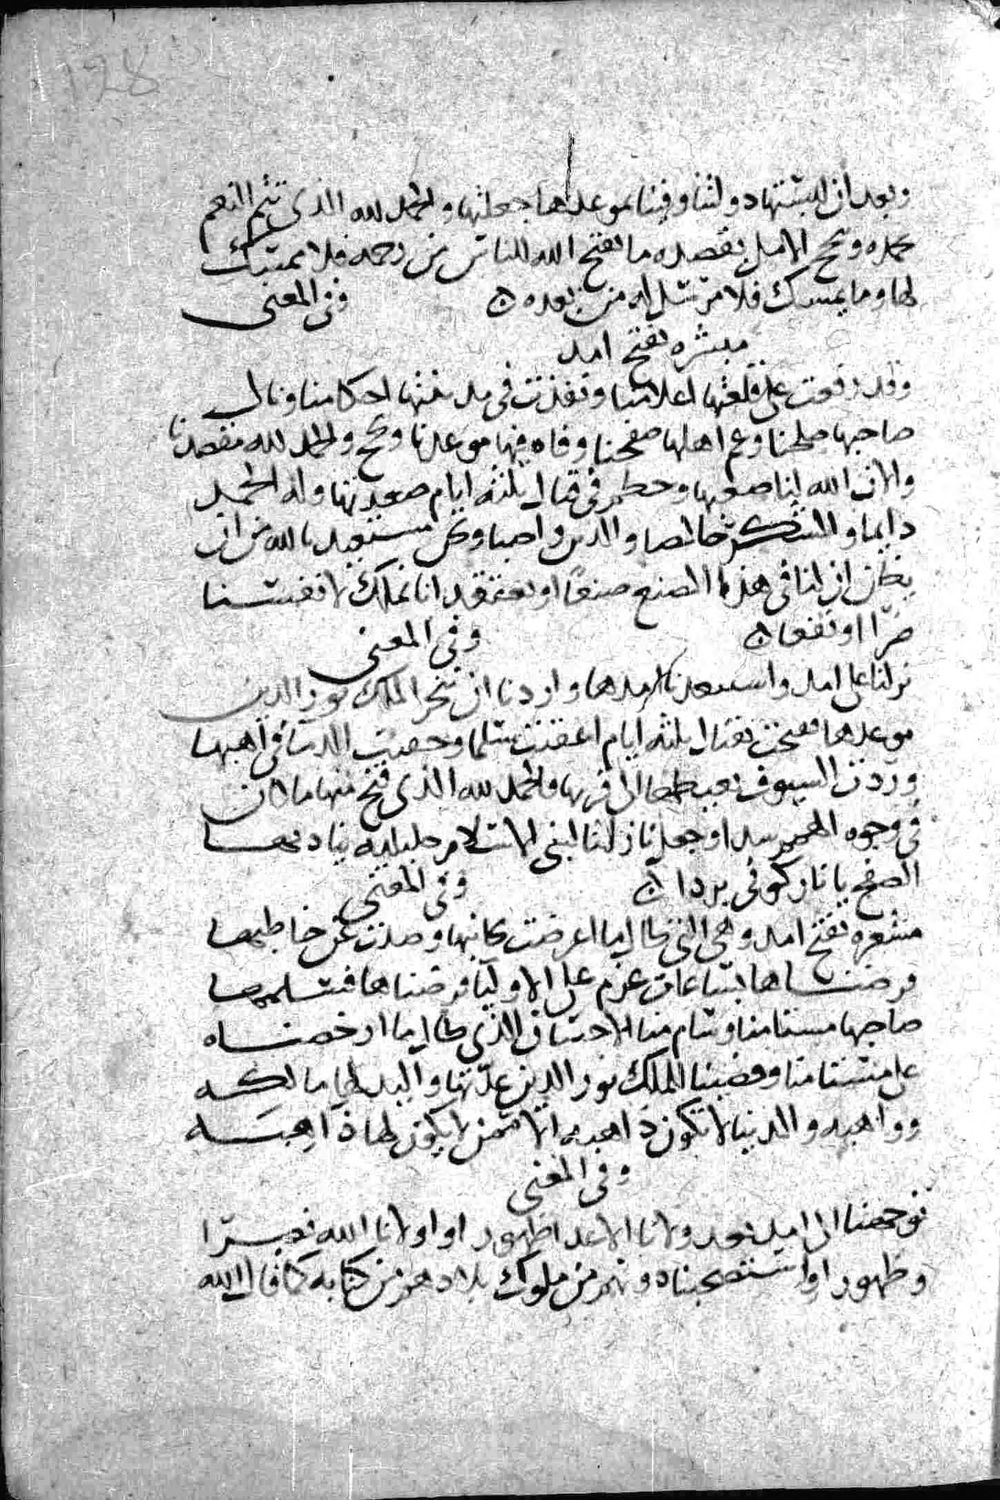 128
وبعد ان البستها دولتنا وفينا بموعدها جعلتها والحمد لله الذى تتم النعم
بحمده ونجح الامل بقصده ما يفتح الله للناس من رحمه فلا ممسك
لها وما يمسك فلا مرسل له من بعده ۞ وفى المعنى
مبشره بفتح امد
وقد رفعت على قلعتها اعلامنا ونفذت فى مدينتها احكامنا ونال
صاحبها صلحنا وعم اهلها صفحنا وفاه فيها موعدنا ونجح والحمد لله مقصدنا
والان الله لنا صعبها فى قتال ثلثه ايام وله الحمد
دايما والشكر خالصا والدين واصبا ونحن نستعيد بالله من ان
يظن ان لنا فى هذا الصنع صنعا او يعتقد انا نملك لانفسنا
ضرّا او نفعا ۞ وفى المعنى
نزلنا على امد واردنا ان ننجز الملك نور الدين
موعدها ففتحت بقتال ثلثه ايام اعقبت سلما وحقنت الدما فى اهبها
وردت السيوف الى قربها والحمد لله الذى فتح منها ما كان
فى وجوه سدا وجعل نازلنا لبنى الاسلام ينادى بها
الصفح يا نار كونى بردا ۞ وفى المعنى
مشعره بفتح امد وهى التى طالما اعرضت بجانبها وصدت عن خاطبها
فرضناها بساعات عزم على الاوليا فرضناها فتسلمها
صاحبها مستامنا وسام منا الاحسان الذى طالما ارخصناه
على مستامنا وقضينا الملك نور الدين عدتها والبلد لها مالكه
وواهبه والدنيا لا تكون ذاهبه الا ممن لا يكون لها ذا هبه
وفى المعنى
توجهنا الى امد بعد ولانا الاعدا ظهورا واولانا الله نصرا
وظهورا واستصحبناه ونهر من ملوك بلادهم من كتابه كما قال الله